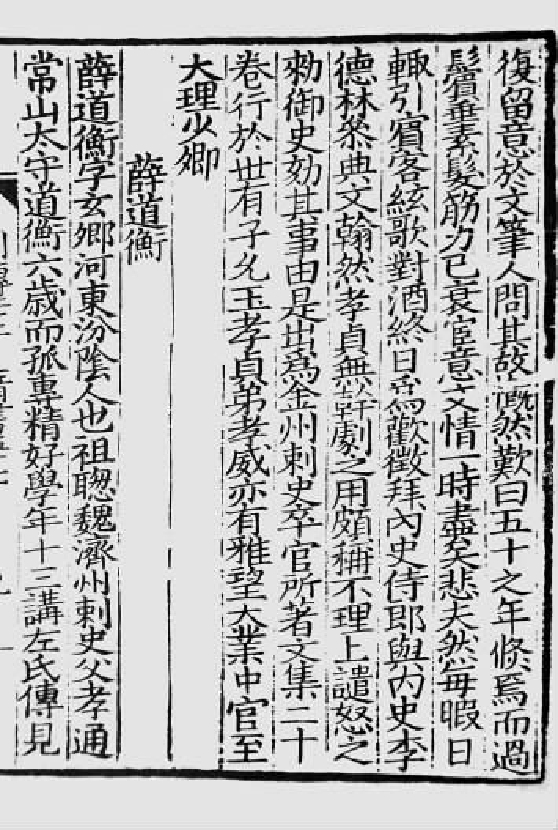 復留意於文筆人問其故慨然歎曰五十之年倐焉而過
鬢垂素髮筋力已衰宦意文情一時盡矣悲夫然每暇日
輙引賓客絃歌對酒終日爲歡徵拜內史侍郎與內史李
德林叅典文翰然孝貞無幹劇之用頗稱不理上譴怒之
勑御史劾其事由是出爲金州刺史卒官所著文集二十
卷行於世有子允玉孝貞弟孝威亦有雅望大業中官至
大理少卿
薛道衡
薛道衡字玄卿河東汾陰人也祖聦魏濟州刺史父孝通
常山太守道衡六歲而孤專精好學年十三講左氏傳見